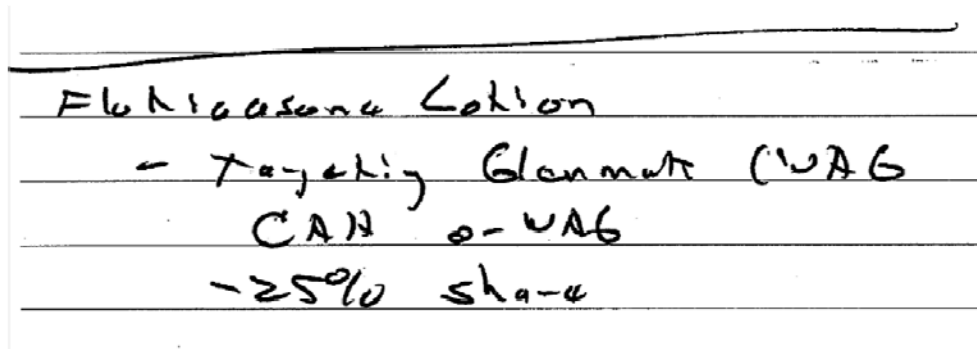 Fluticasone Lotion
- Targeting Glenmark (WAG
CAH or WAG
-25% share